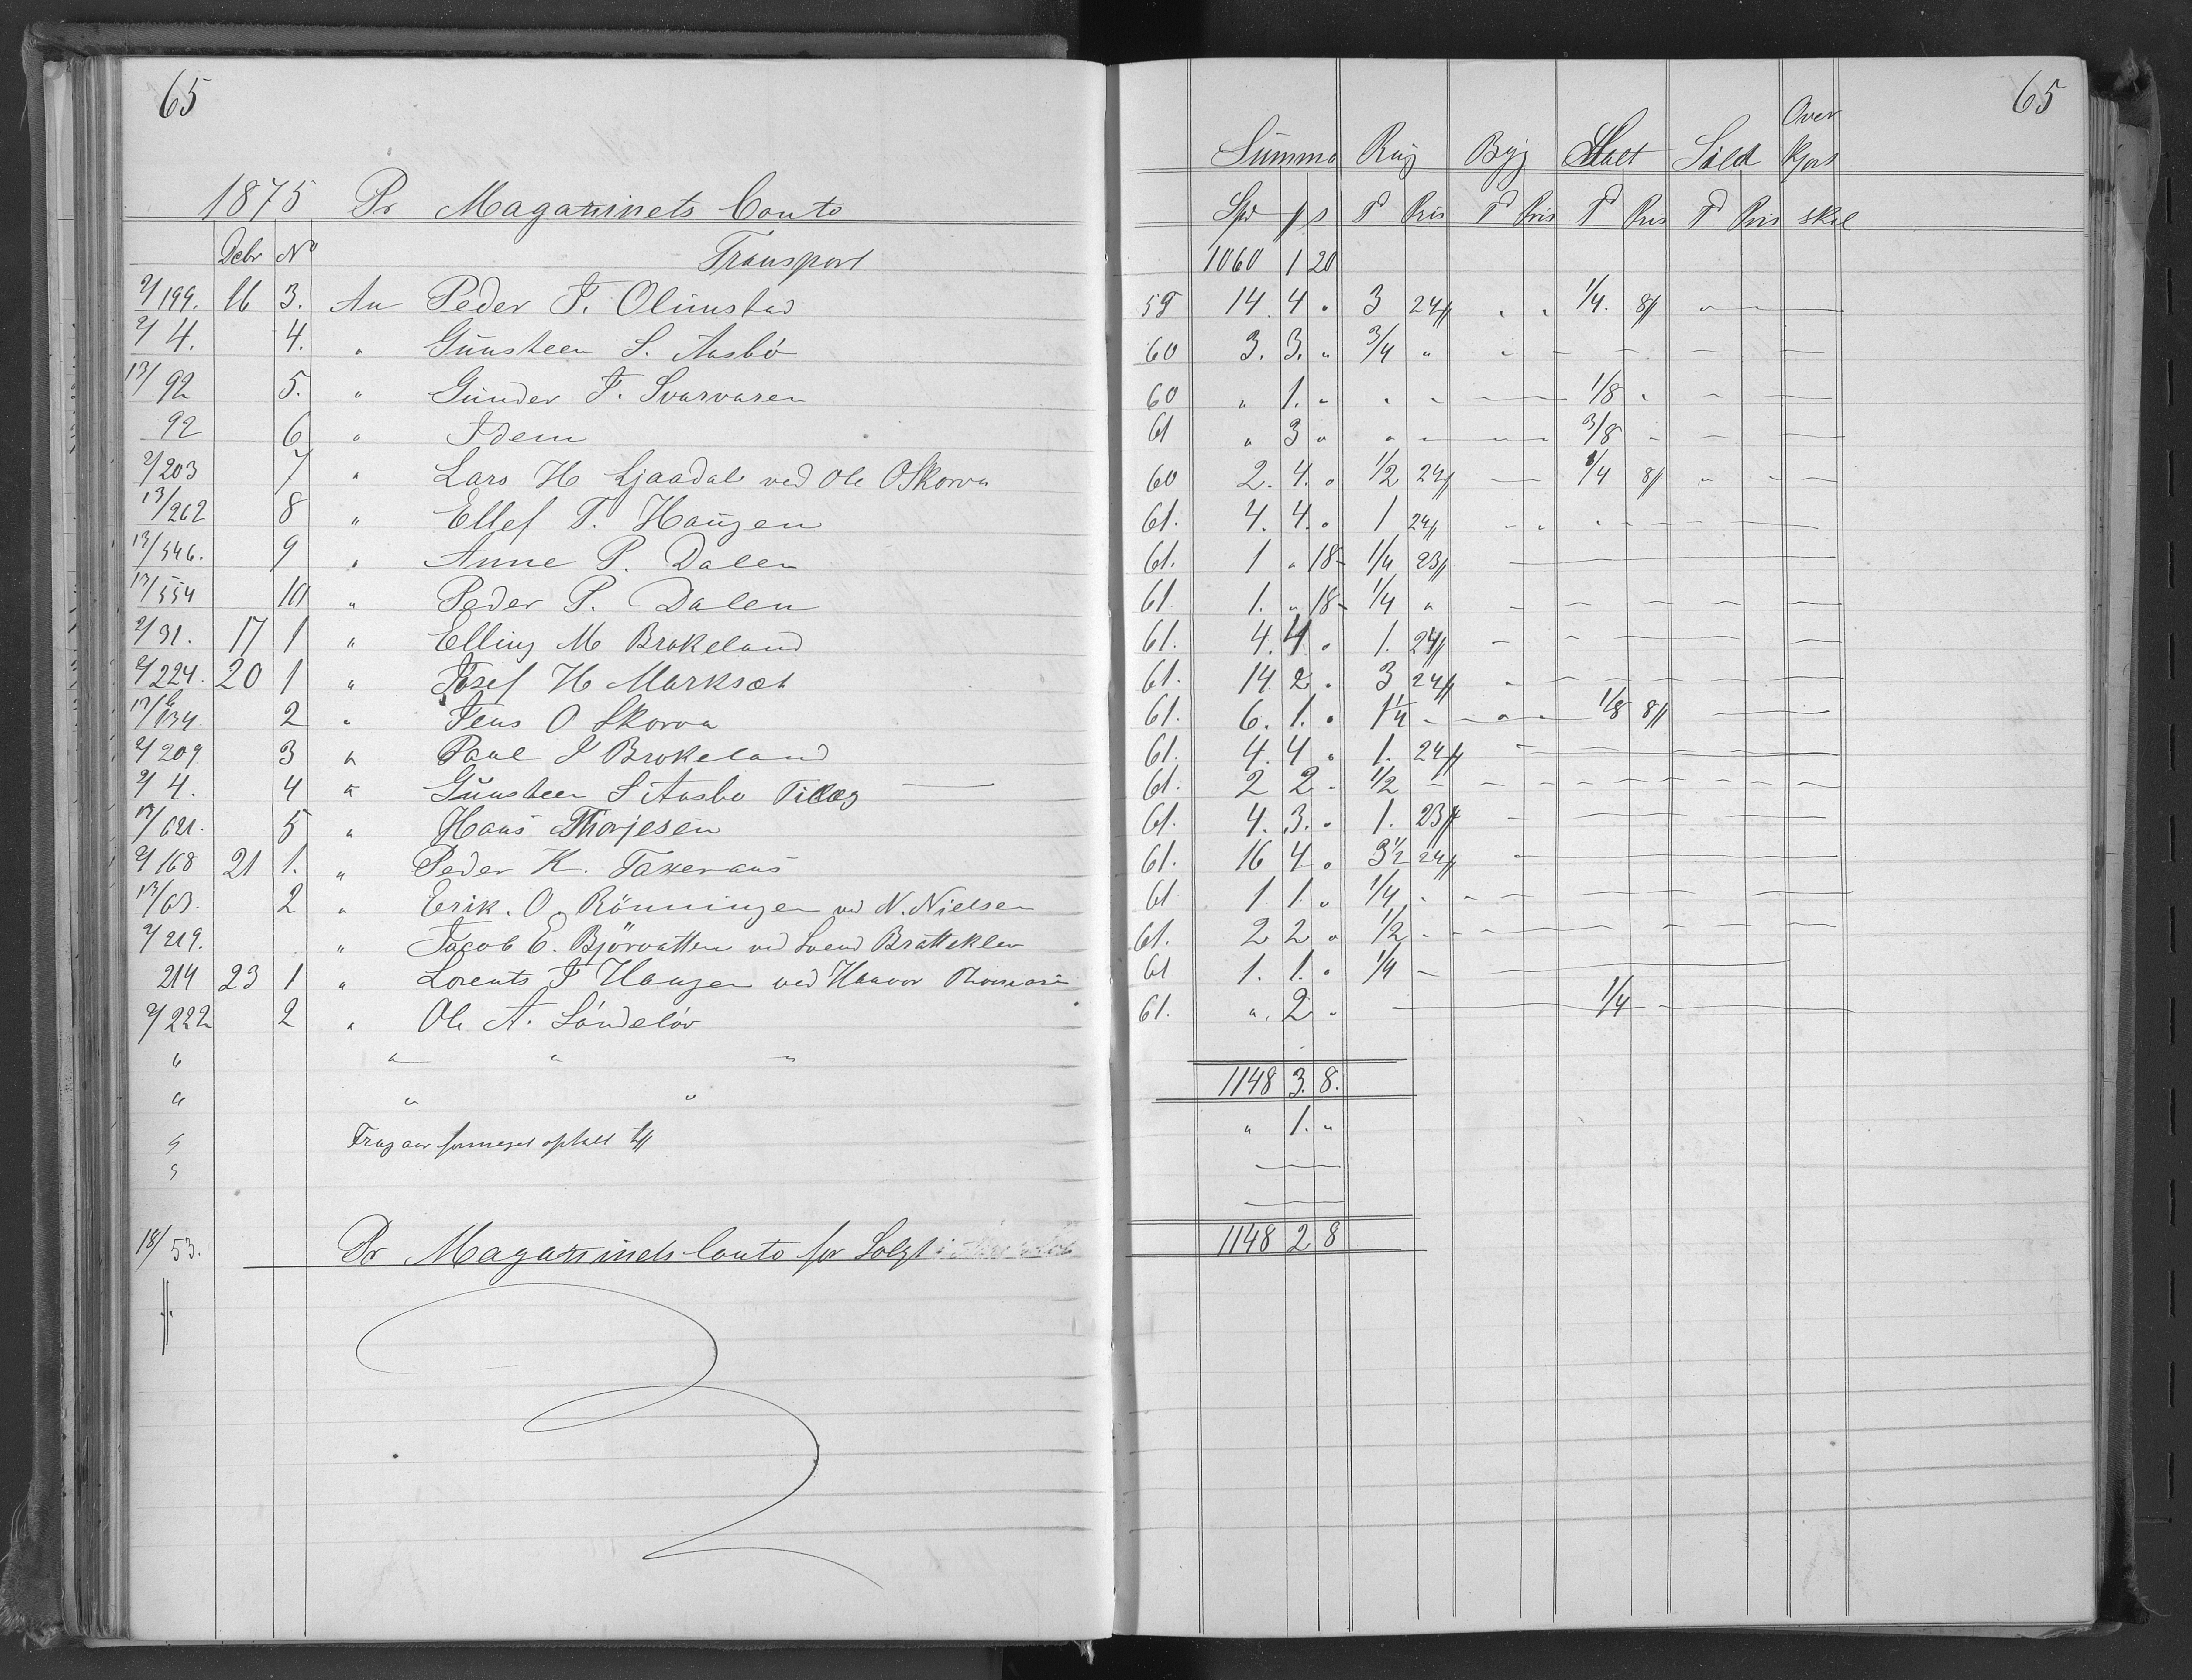 65
1875 Pr Magazinets Conto
Debr No Transport
2/199. 16 3. An Peder T. Olimstad
2/4. 4. " Gunsteen S. Aasbö
13/92 5. " Gunder T. Svarvaren
92 6 " Idem
2/203 7 " Lars H Ljaadal ved Ole O Skorva
13/262 8 " Ellef T. Haugen
13/546. 9 " Anne P. Dalen
13/554 10 " Peder P. Dalen
2/31. 17 1 " Elling M Brokeland
2/224. 20 1 " Josef H Marksæt
134. 2 " Jens O Skorva
2/209 3 " Paul J Brokeland
2/4. 4 " Gunsteen S Aasbo Tillæg
13/621. 5 " Hans Thorjesen
2/168 21 1. " Peder K. Taxeraas
13/63. 2 " Erik. O. Rönningen ved N. Nielsen
2/219. " Jacob E. Björvatten ved Svend Bratteklev
214 23 1 " Lorents T Haugen ved Haavor
2/222 2 " Ole A. Söndelöv
" " " "
" " "
18/53. Pr Magazinets Conto for Solgt
65
Summa Rug Byg Malt Sild Over kjørt
Spd # s T Pris T Pris T Pris T Pris skil
1060 1 20
59 14. 4 " 3 24# " " 1/4. 8# " —
60 3. 3. " 3/4 " " — — — —
60 " 1. " " " — 1/8 " — —
61 " 3 " " " — 3/8 — — —
60 2. 4. " 1/2 24# — 1/4 8# " " —
61. 4. 4. " 1 24# " " " — — —
61. 1 " 18 1/4 23# —
61. 1. " 18 1/4 " — — — — —
61. 4. 4 " 1. 24# — — — — —
61. 14 2 " 3 24# — — — — — —
61. 6. 1. " 1 1/4 — — " — 1/8 8# —
61. 4. 4 " 1. 24# —
61. 2 2 - 1/2 — — — — — —
61. 4. 3. " 1. 23# — —
61. 16 4 " 3 1/2 24# —
61 1 1. " 1/4 " — — — — —
61. 2 2 " 1/2 — — — — —
61 1. 1. " 1/4 — —
61. " 2 " — 1/4 —
1148 3. 8.
" 1. "
1148 2 8